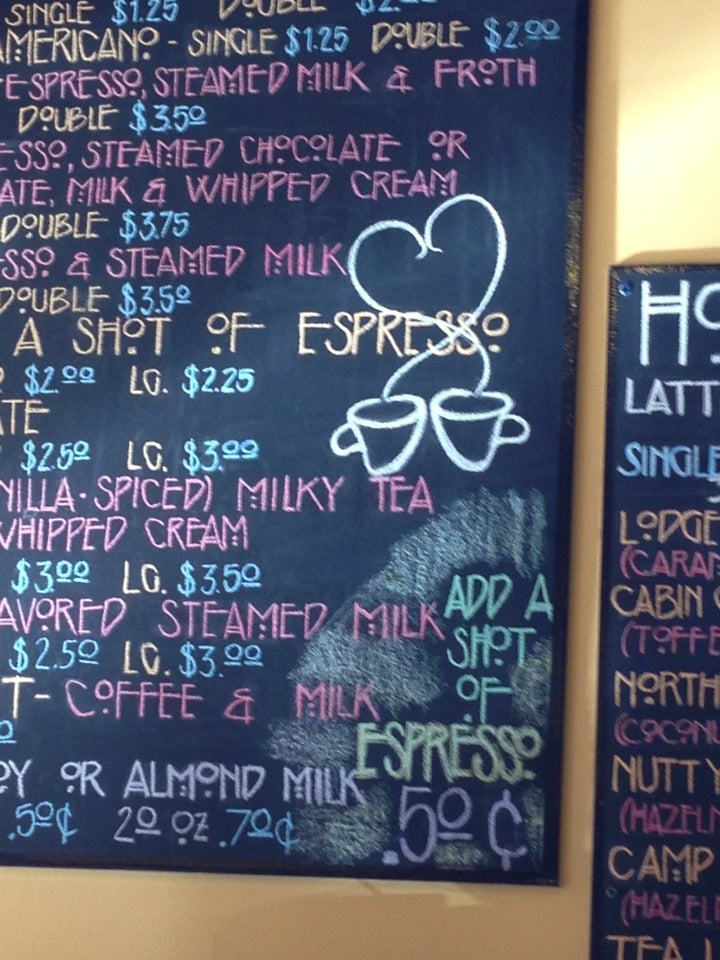 SINGLE $1.25 DOUBLE $2.00
AMERICANO - SINGLE $1.25 DOUBLE $2.00
ESPRESSO, STEAMED MILK & FROTH
DOUBLE $3.50
STEAMED CHOCOLATE OR
MILK & WHIPPED CREAM
DOUBLE $3.75
& STEAMED MILK
DOUBLE $3.50
A SHOT OF ESPRESSO
$2.00 LG. $2.25
$2.50 LG. $3.00
SPICED) MILKY TEA
WHIPPED CREAM
$3.00 LG. $3.50
STEAMED MILK
$2.50 LG. $3.00
COFFEE & MILK
OR ALMOND MILK
.50¢ 20 OZ .70¢
ADD A
SHOT
OF
ESPRESSO
.50¢
HO
LATT
SINGLE
LODGE
(CARAM
CABIN
(TOFFE
NORTH
(COCONU
NUTTY
(HAZELN
CAMP
(HAZELN
TEA L